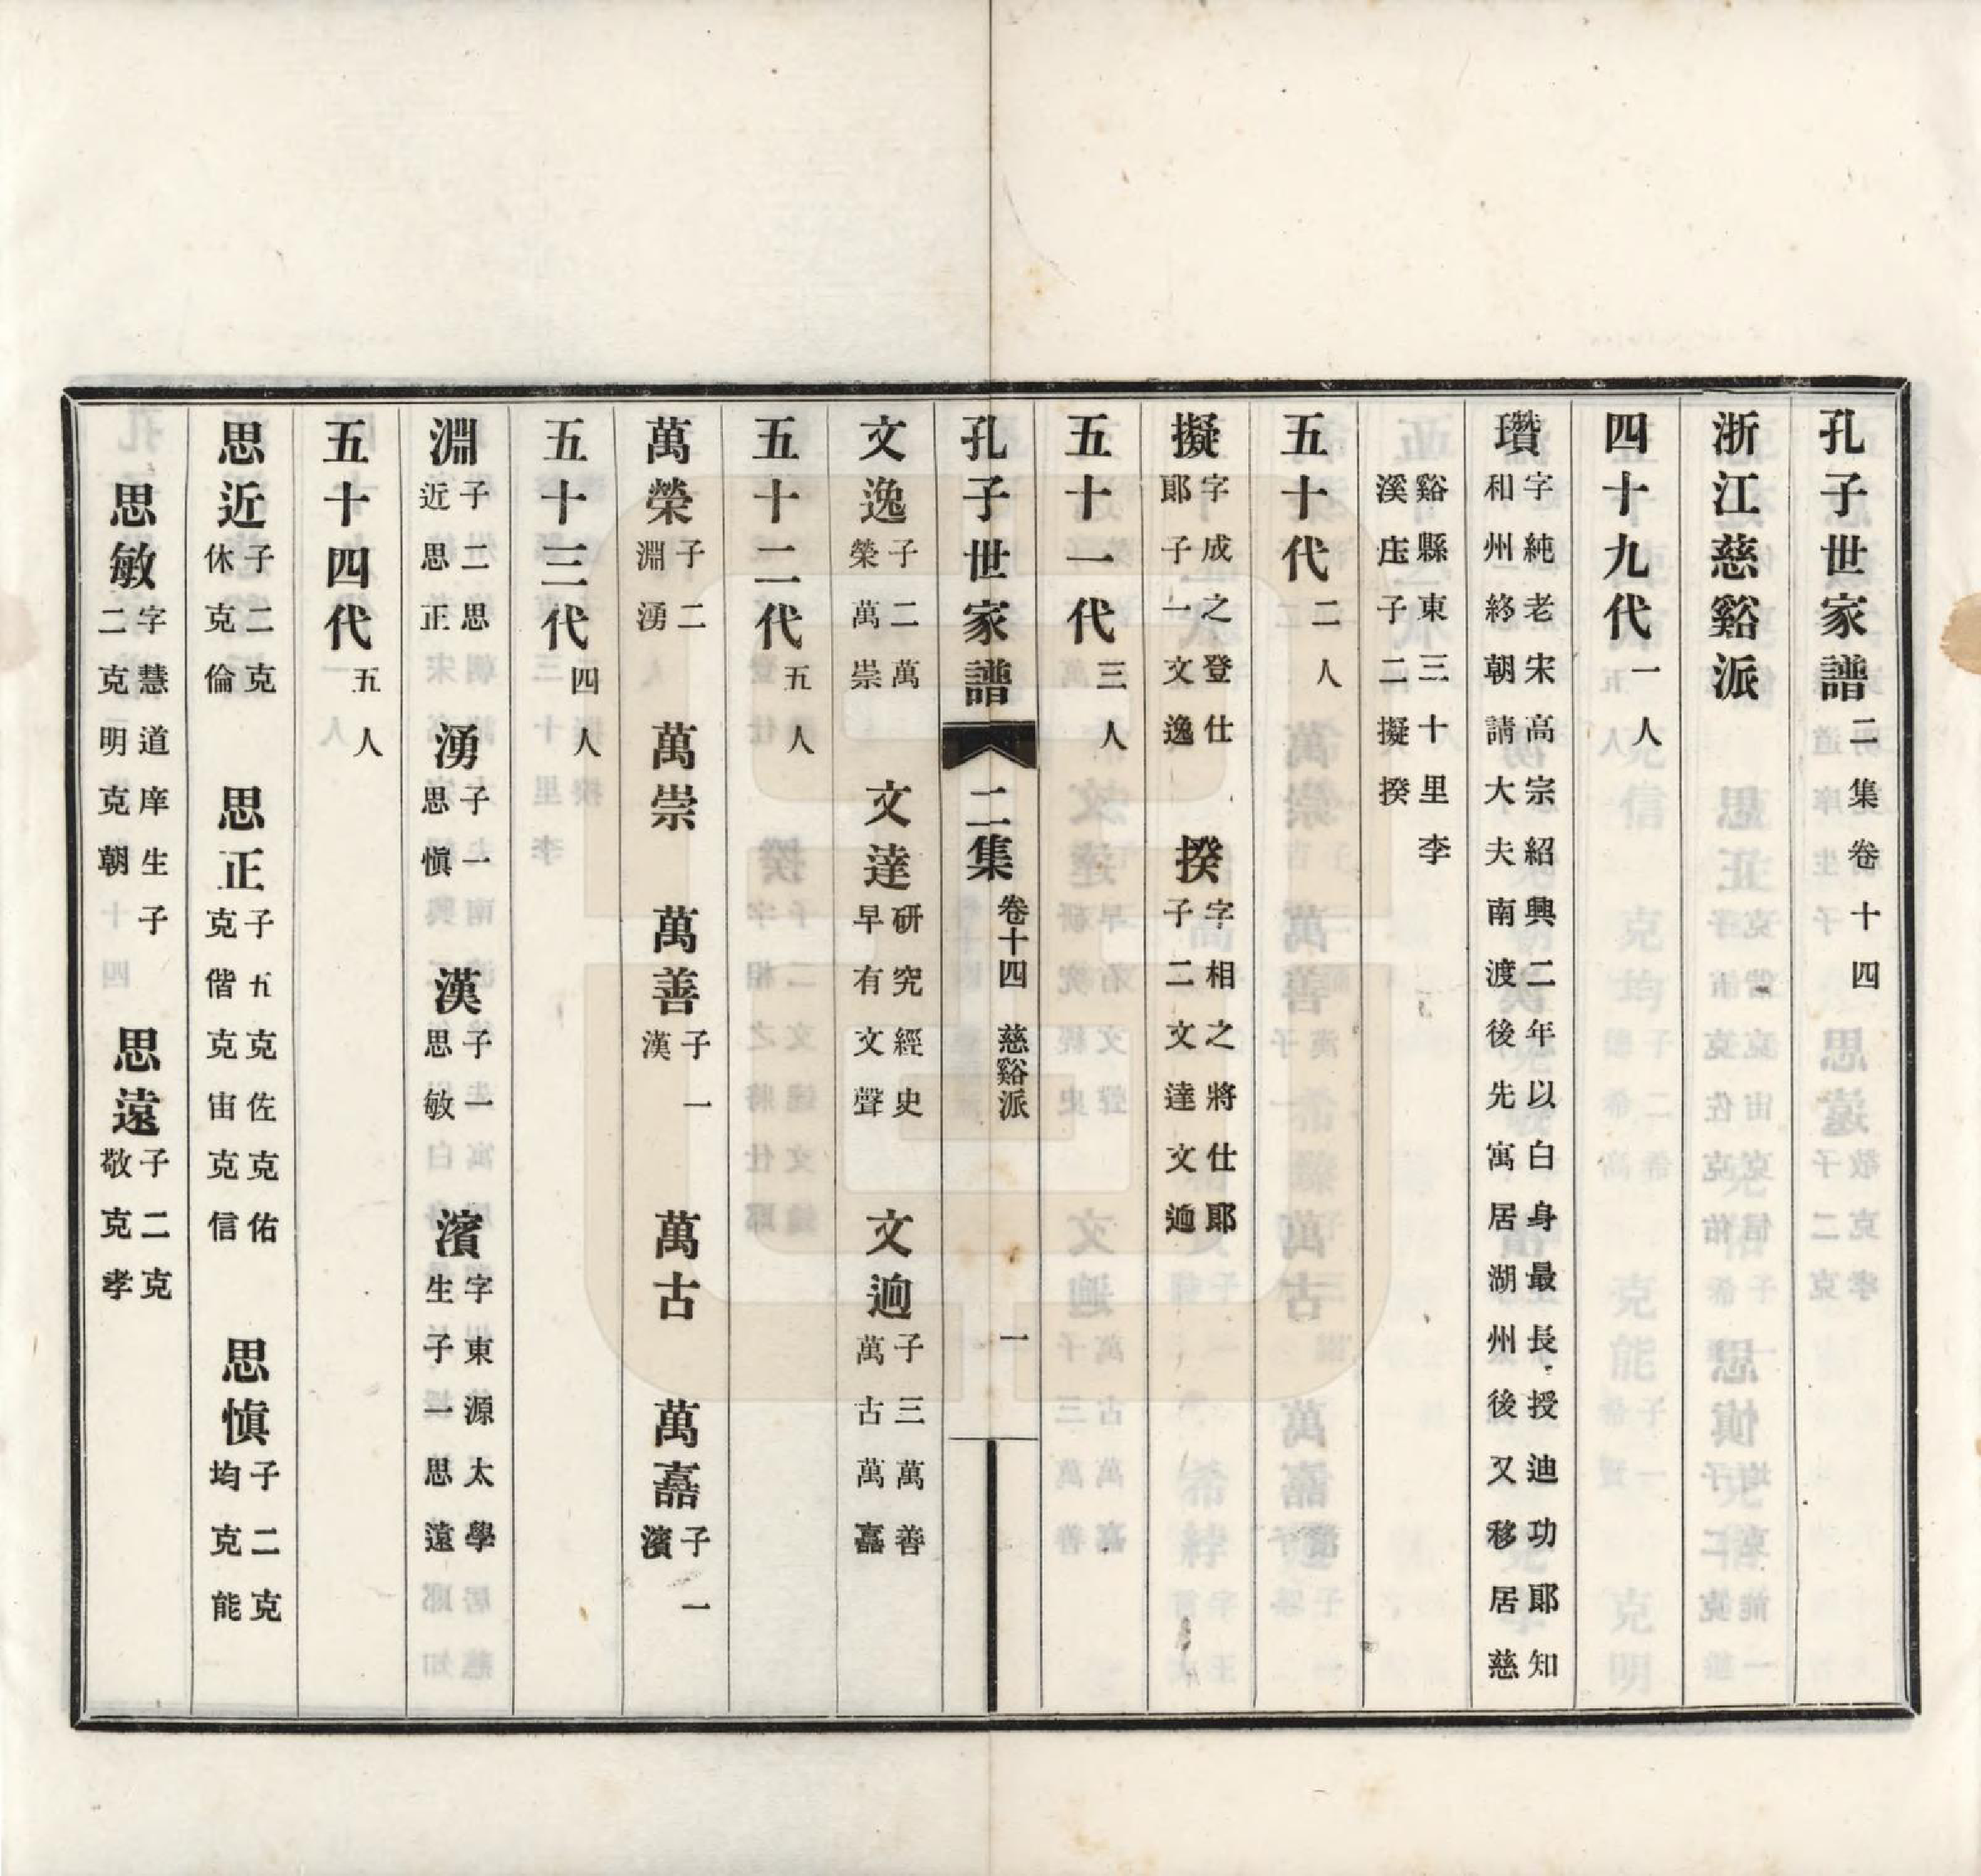 孔子世家譜二集卷十四
浙江慈谿派
四十九代一人
瓚字純老宋高宗紹興二年以白身最長授迪功郞知
和州終朝請大夫南渡後先寓居湖州後又移居慈
谿縣東三十里李
溪庄子二擬揆
五十代二人
擬字成之登仕
郞子一文逸
揆字相之將仕郞
子二文達文逈
五十一代三人
孔子世家譜 二集卷十四 慈谿派 一
文逸子二萬
榮萬崇
文達研究經史
早有文聲
文逈子三萬善
萬古萬嘉
五十二代五人
萬榮子二
淵湧
萬崇
萬善子一
漢
萬古
萬嘉子一
濱
五十三代四人
淵子二思
近思正
湧子一
思愼
漢子一
思敏
濱字東源太學
生子一思遠
五十四代五人
思近子二克
休克倫
思正子五克佐克佑
克偕克宙克信
思愼子二克
均克能
思敏字慧道庠生子
二克明克朝
思遠子二克
敬克孝